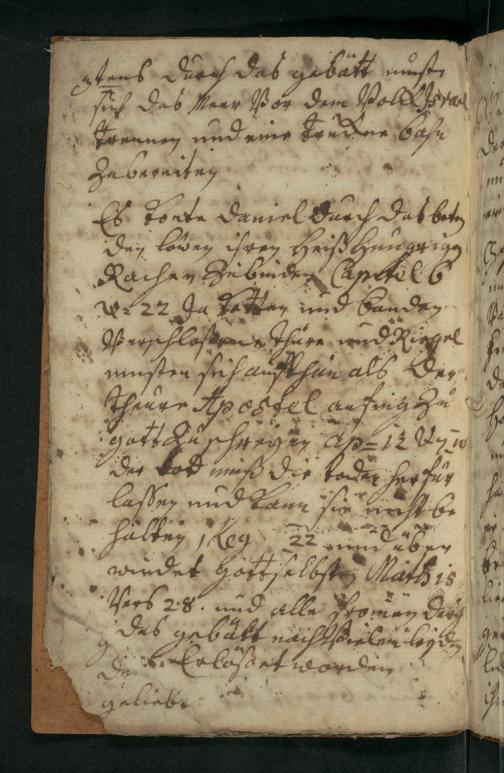 9tens durch das gebätt muste
sich das Meer Vor dem Volck Jsrael
trennen und eine truckne bahn
Zubereiten
Es konte Daniel durch das beten
den löwen ihren heiß hungrigen
Rachen Zubinden Capitel 6
v= 22 Ja ketten und banden
Verschloßene thüre und Riegel
musten sich aufthun als Der
theure Apostel anfing Zu
gott Zuschreyen ap= 12 V 7
der tod muß die toden herfür
laßen und kann sie nicht be
halten 1 Reg 22 und über
windet Gott selbsten Math 15
Vers 28. und alle fromen durch
das gebätt nach Vielem leyden
Erlößet worden
gelieb